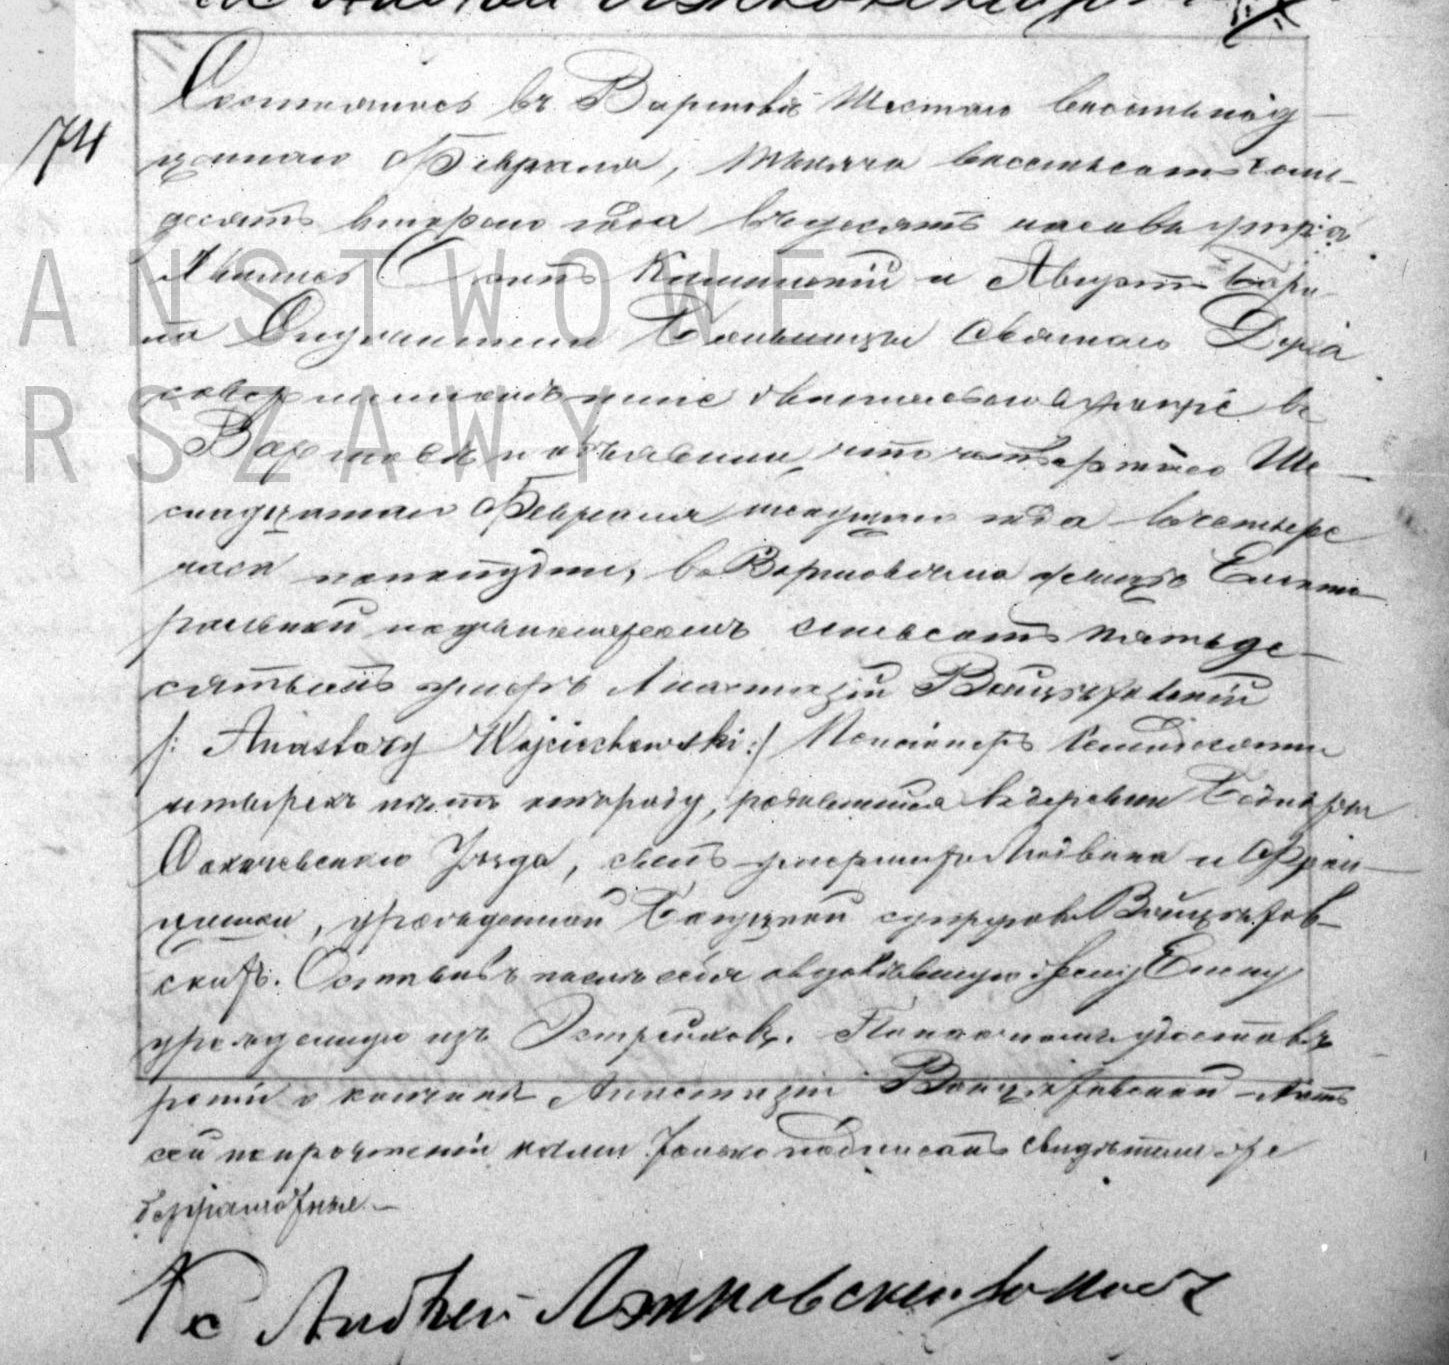 74
Состоялось въ Варшавѣ Шестаго восемьнад-
цатаго Февраля, тысяча восемьсотъ семь-
десятъ втораго года въ десять часовъ утра
Явились Каминскій и Августъ
Больницы Святаго Духа
совершеннолѣтніе жительствующіе въ
Варшавѣ и объявили, что четвертаго Ше-
снадцатаго Февраля текущаго года въ четыре
часа пополудни, въ Варшавѣ на улицѣ Електо-
ральной подъ номеромъ семьсотъ пятьде-
сятымъ умеръ Анастазій Войцѣховскій
/: Anastazy Wojciechowski :/ Пансіонеръ семидесяти
четырехъ лѣтъ отъ роду, родившійся въ деревни
Сохачевскаго Уѣзда, сынъ умершихъ Людвика и Фран-
цишки, урожденной супруговъ Войцѣхов-
скихъ. Оставивъ послѣ себя овдовѣвшую жену Елену
урожденную изъ По наочномъ удостовѣ-
реніи о кончинѣ Анастазія Войцѣховскаго Актъ
сей по прочтеніи нами только подписанъ свидѣтели же
безграмотные.
Кс Андрей
ANSTWOWE
RSZAWY